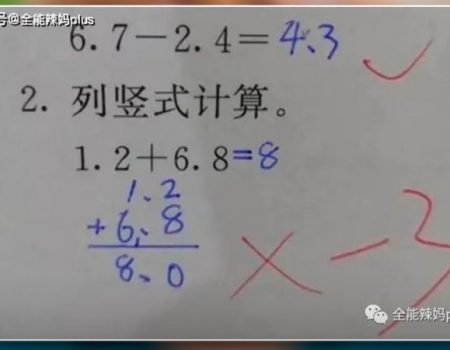 号@全能辣妈plus
6.7-2.4=4.3
2. 列竖式计算。
1.2+6.8=8
1.2
+6.8
8.0
× -3
全能辣妈p